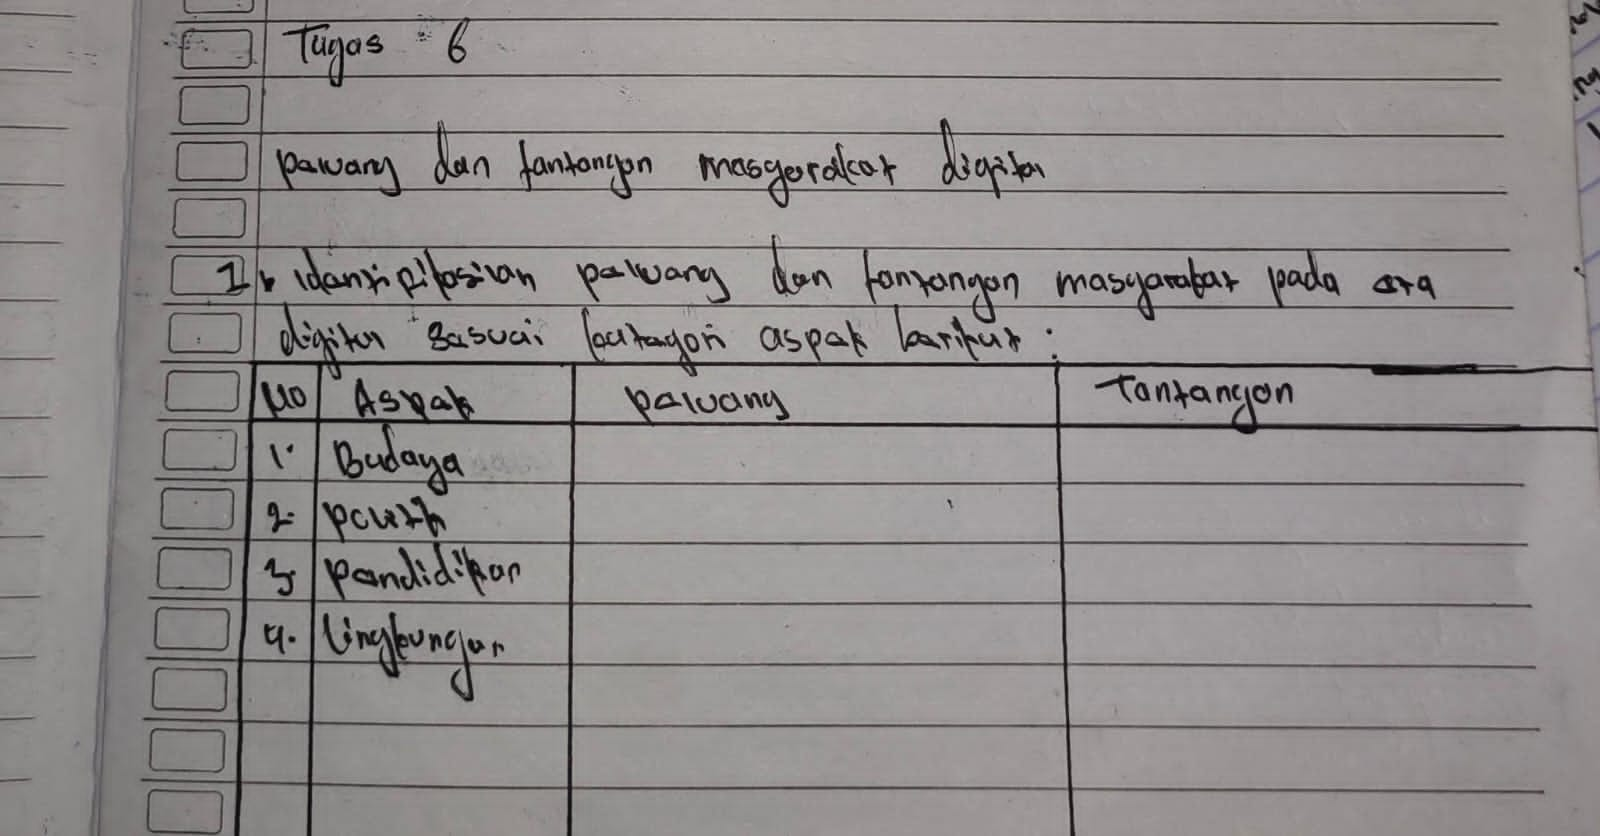 Tugas 6
peluang dan tantangan masyarakat digital
1. Identifikasikan peluang dan tantangan masyarakat pada era
digital sesuai kategori aspek berikut :
No Aspek peluang Tantangan
1. Budaya
2. politik
3. pendidikan
4. lingkungan